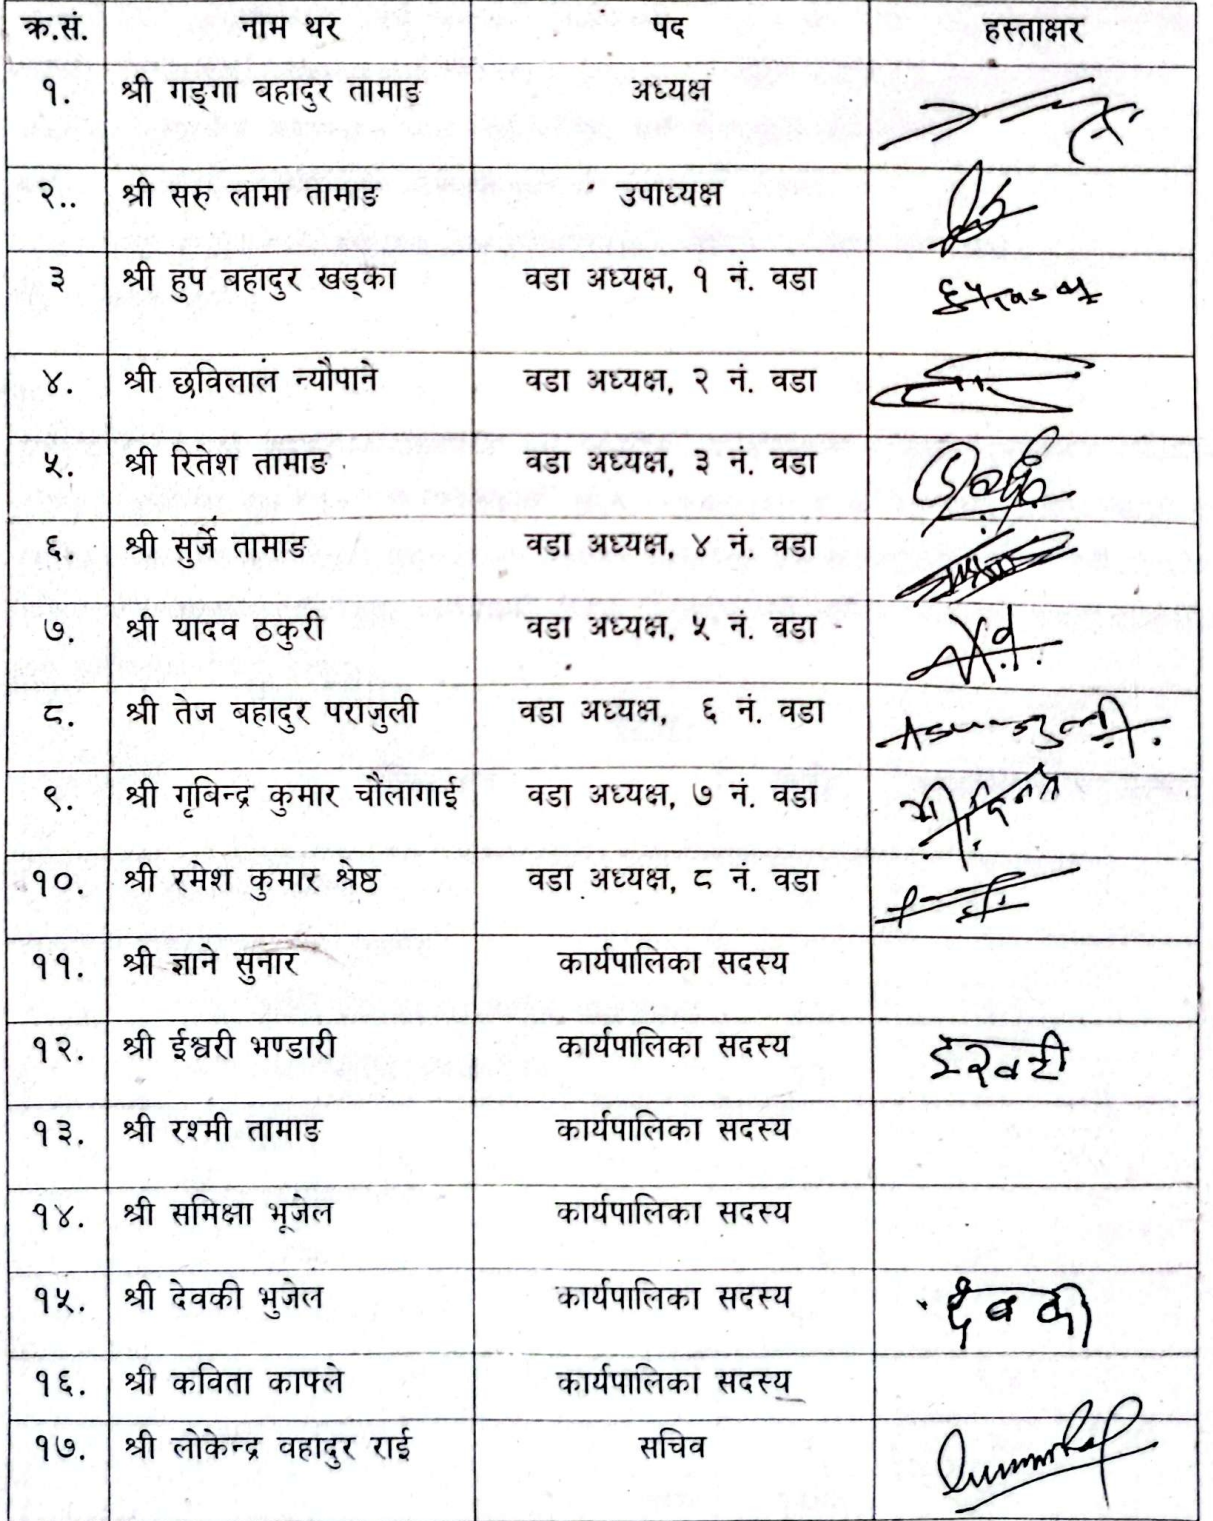 क्र.सं. नाम थर पद हस्ताक्षर
१. श्री गङ्गा वहादुर तामाङ अध्यक्ष
२.. श्री सरु लामा तामाङ उपाध्यक्ष
३ श्री हुप बहादुर खड्का वडा अध्यक्ष, १ नं. वडा
४. श्री छविलाल न्यौपाने वडा अध्यक्ष, २ नं. वडा
५. श्री रितेश तामाङ वडा अध्यक्ष, ३ नं. वडा
६. श्री सुर्जे तामाङ वडा अध्यक्ष, ४ नं. वडा
७. श्री यादव ठकुरी वडा अध्यक्ष, ५ नं. वडा
८. श्री तेज वहादुर पराजुली वडा अध्यक्ष, ६ नं. वडा
९. श्री गृविन्द्र कुमार चौलागाई वडा अध्यक्ष, ७ नं. वडा
१०. श्री रमेश कुमार श्रेष्ठ वडा अध्यक्ष, ८ नं. वडा
११. श्री ज्ञाने सुनार कार्यपालिका सदस्य
१२. श्री ईश्वरी भण्डारी कार्यपालिका सदस्य
१३. श्री रश्मी तामाङ कार्यपालिका सदस्य
१४. श्री समिक्षा भूजेल कार्यपालिका सदस्य
१५. श्री देवकी भुजेल कार्यपालिका सदस्य देवकी
१६. श्री कविता काफ्ले कार्यपालिका सदस्य
१७. श्री लोकेन्द्र वहादुर राई सचिव